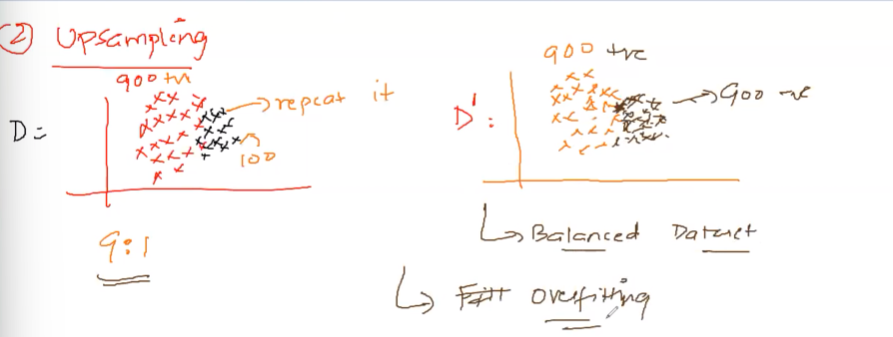 ② Upsampling
900 +ve
repeat it
D =
100
9:1
900 +ve
D' :
900 -ve
Balanced Dataset
Overfitting